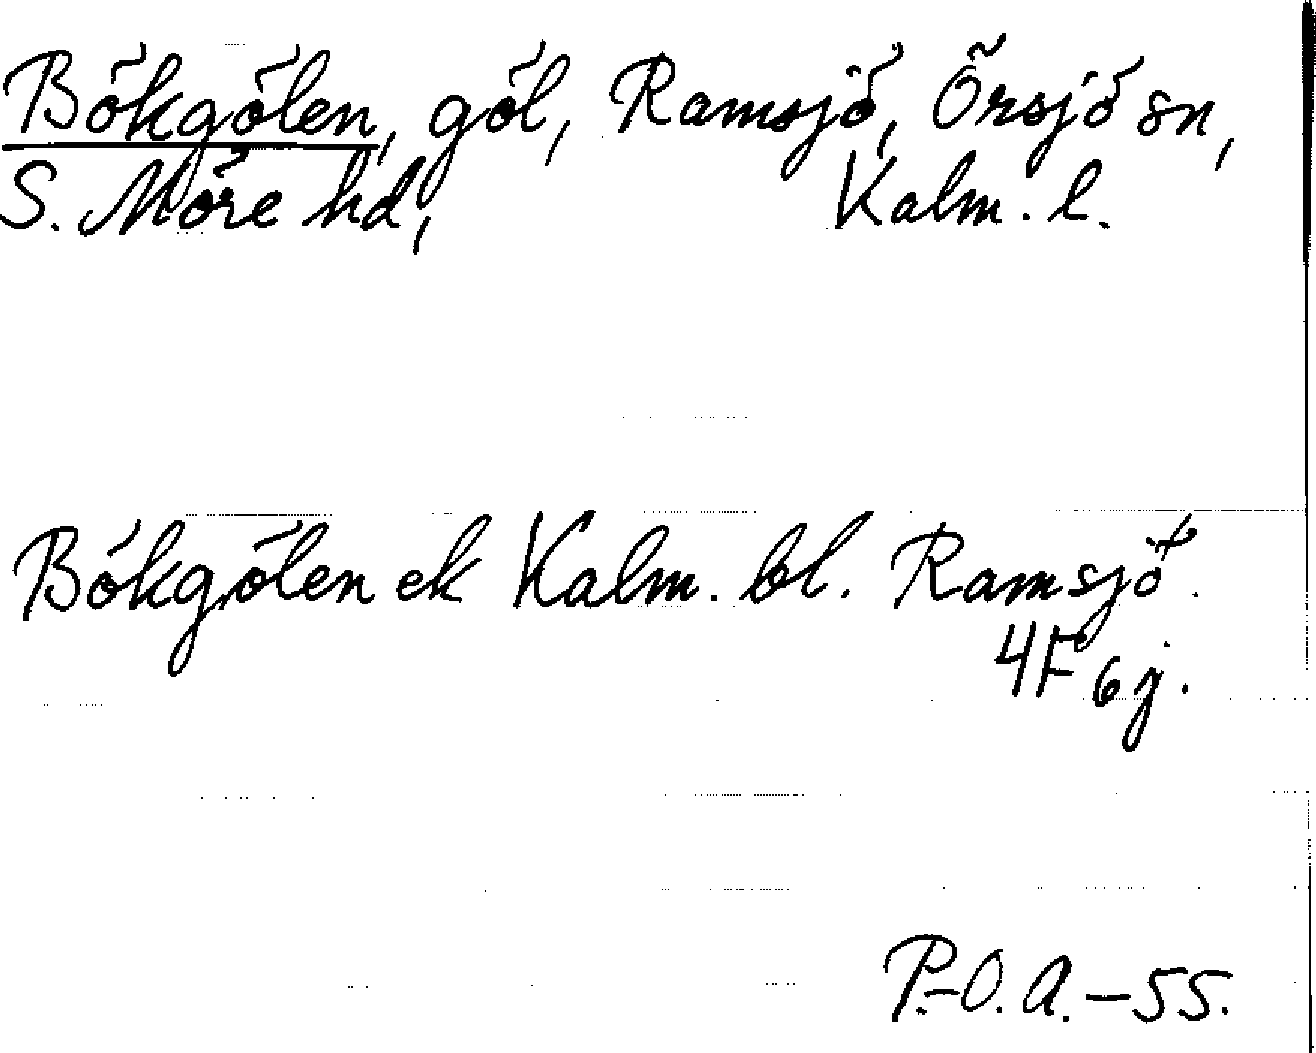 Bökgölen, göl, Ramsjö, Örsjö sn,
S. Möre hd, Kalm. l.
Bökgölen ek Kalm. bl. Ramsjö.
4F 6j.
P.-O. A. - 55.